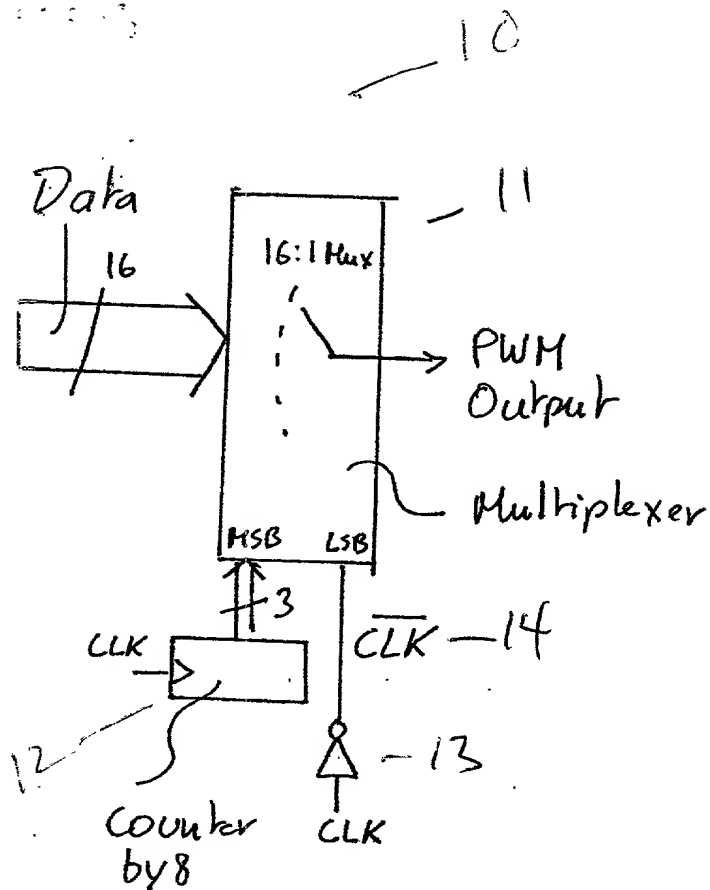 10
Data
11
16
16:1 Mux
PWM
Output
Multiplexer
MSB LSB
3
CLK
CLK — 14
12
13
Counter
by 8
CLK